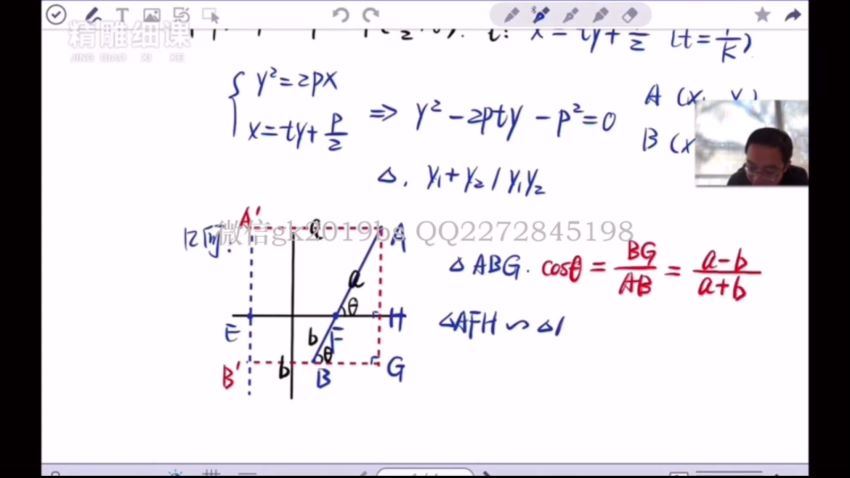 精雕细课
JING DIAO XI KE
x = ty + p/2 (t = 1/K)
{ y²=2px
x=ty+p/2
⇒ y²-2pty-p²=0
A (x₁ y₁)
B (x
△. y₁+y₂ / y₁y₂
微信gk2019bs QQ2272845198
A'
a
A
a
θ
E
F
H
b
θ
B'
b
B
G
△ABG. cosθ = BG/AB = a-b/a+b
△AFH ∽ △